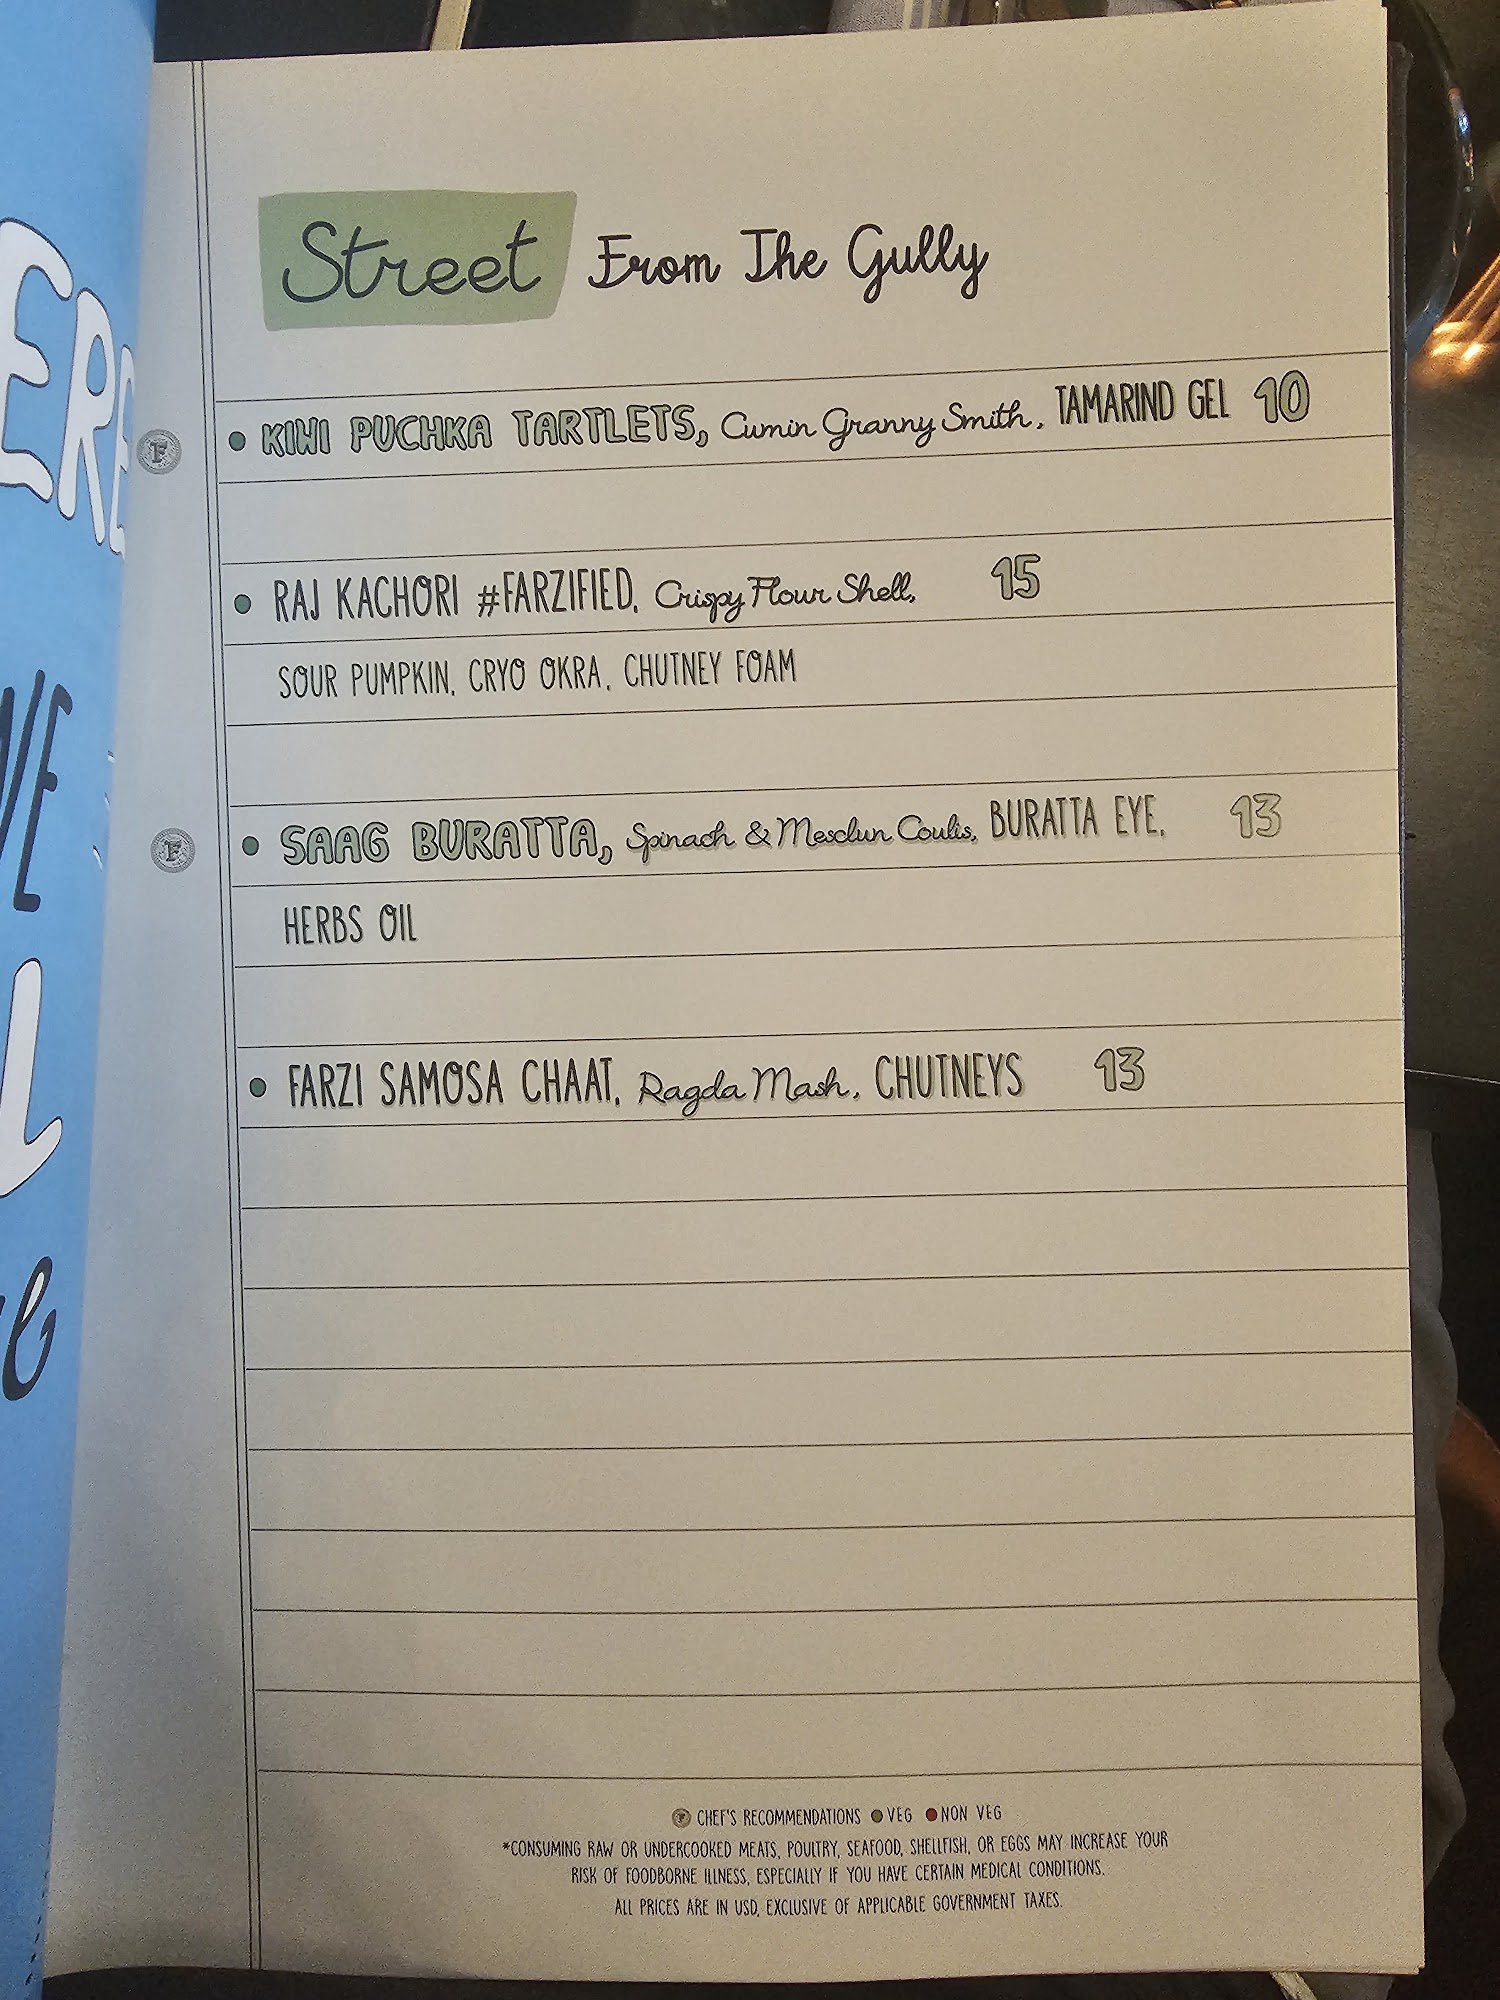 Street From The Gully
KIWI PUCHKA TARTLETS, Cumin Granny Smith, TAMARIND GEL 10
RAJ KACHORI #FARZIFIED, Crispy Flour Shell, 15
SOUR PUMPKIN, CRYO OKRA, CHUTNEY FOAM
SAAG BURATTA, Spinach & Mesclun Coulis, BURATTA EYE, 13
HERBS OIL
FARZI SAMOSA CHAAT, Ragda Mash, CHUTNEYS 13
F CHEF'S RECOMMENDATIONS VEG NON VEG
*CONSUMING RAW OR UNDERCOOKED MEATS, POULTRY, SEAFOOD, SHELLFISH, OR EGGS MAY INCREASE YOUR
RISK OF FOODBORNE ILLNESS, ESPECIALLY IF YOU HAVE CERTAIN MEDICAL CONDITIONS.
ALL PRICES ARE IN USD, EXCLUSIVE OF APPLICABLE GOVERNMENT TAXES.